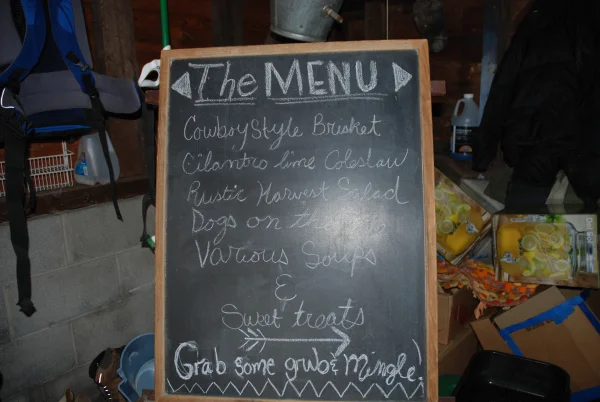 The MENU
CowboyStyle Brisket
Cilantro lime Coleslaw
Rustic Harvest Salad
Dogs on the
Various Soups
&
Sweet treats
Grab some grub & Mingle!